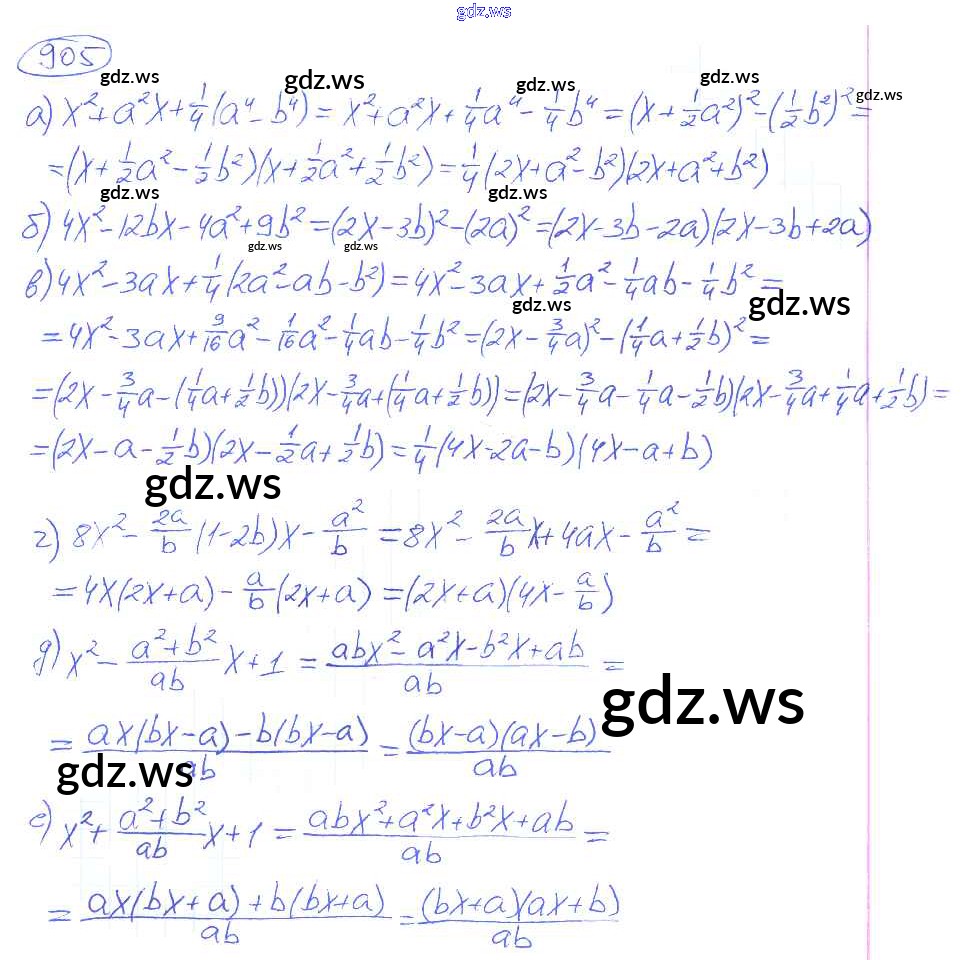 gdz.ws
905
gdz.ws gdz.ws gdz.ws gdz.ws gdz.ws
а) x² + a²x + 1/4(a⁴ - b⁴) = x² + a²x + 1/4a⁴ - 1/4b⁴ = (x + 1/2a²)² - (1/2b²)² =
= (x + 1/2a² - 1/2b²)(x + 1/2a² + 1/2b²) = 1/4(2x + a² - b²)(2x + a² + b²)
gdz.ws gdz.ws gdz.ws
б) 4x² - 12bx - 4a² + 9b² = (2x - 3b)² - (2a)² = (2x - 3b - 2a)(2x - 3b + 2a)
gdz.ws gdz.ws
в) 4x² - 3ax + 1/4(2a² - ab - b²) = 4x² - 3ax + 1/2a² - 1/4ab - 1/4b² =
gdz.ws gdz.ws
= 4x² - 3ax + 9/16a² - 1/16a² - 1/4ab - 1/4b² = (2x - 3/4a)² - (1/4a + 1/2b)² =
= (2x - 3/4a - (1/4a + 1/2b))(2x - 3/4a + (1/4a + 1/2b)) = (2x - 3/4a - 1/4a - 1/2b)(2x - 3/4a + 1/4a + 1/2b) =
= (2x - a - 1/2b)(2x - 1/2a + 1/2b) = 1/4(4x - 2a - b)(4x - a + b)
gdz.ws
г) 8x² - 2a/b(1 - 2b)x - a²/b = 8x² - 2a/b x + 4ax - a²/b =
= 4x(2x + a) - a/b(2x + a) = (2x + a)(4x - a/b)
д) x² - (a² + b²)/ab x + 1 = (abx² - a²x - b²x + ab)/ab =
gdz.ws
= (ax(bx - a) - b(bx - a))/ab = ((bx - a)(ax - b))/ab
gdz.ws
е) x² + (a² + b²)/ab x + 1 = (abx² + a²x + b²x + ab)/ab =
= (ax(bx + a) + b(bx + a))/ab = ((bx + a)(ax + b))/ab